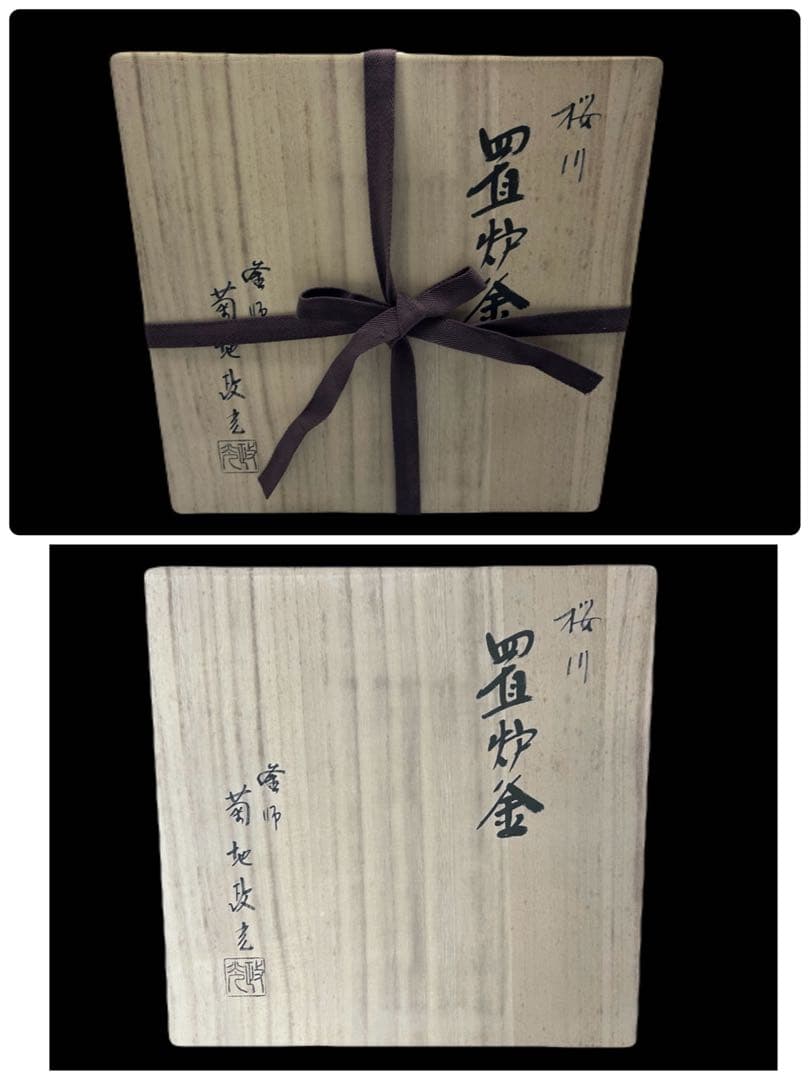 桜川
置炉釜
釜師
菊地政光
政光
桜川
置炉釜
釜師
菊地政光
政光